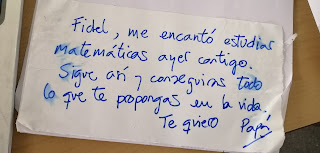 Fidel, me encantó estudiar
matemáticas ayer contigo.
Sigue así y conseguiras todo
lo que te propongas en la vida.
Te quiero Papá